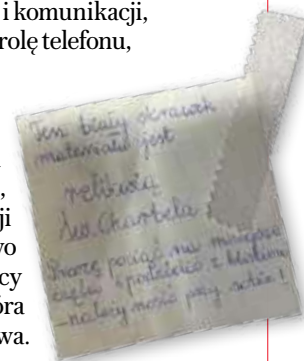 i komunikacji,
rolę telefonu,
,
ji
wo
cy
óra
wa.
Ten biały skrawek
materiału jest
relikwią
św. Charbela
Proszę pociąć na mniejsze
części i podzielić z bliskimi
– należy nosić przy sobie!